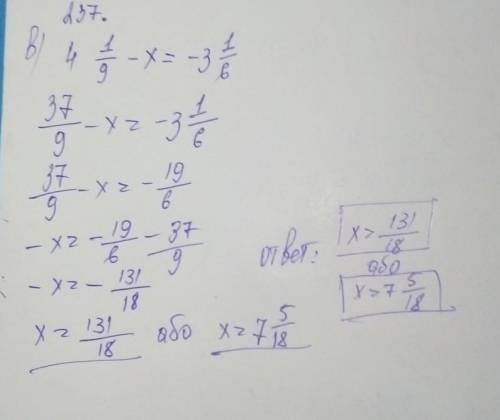 237.
в) 4 1/9 - x = -3 1/6
37/9 - x = -3 1/6
37/9 - x = - 19/6
- x = - 19/6 - 37/9
- x = - 131/18
x = 131/18 або x = 7 5/18
ответ: x = 131/18
або
x = 7 5/18